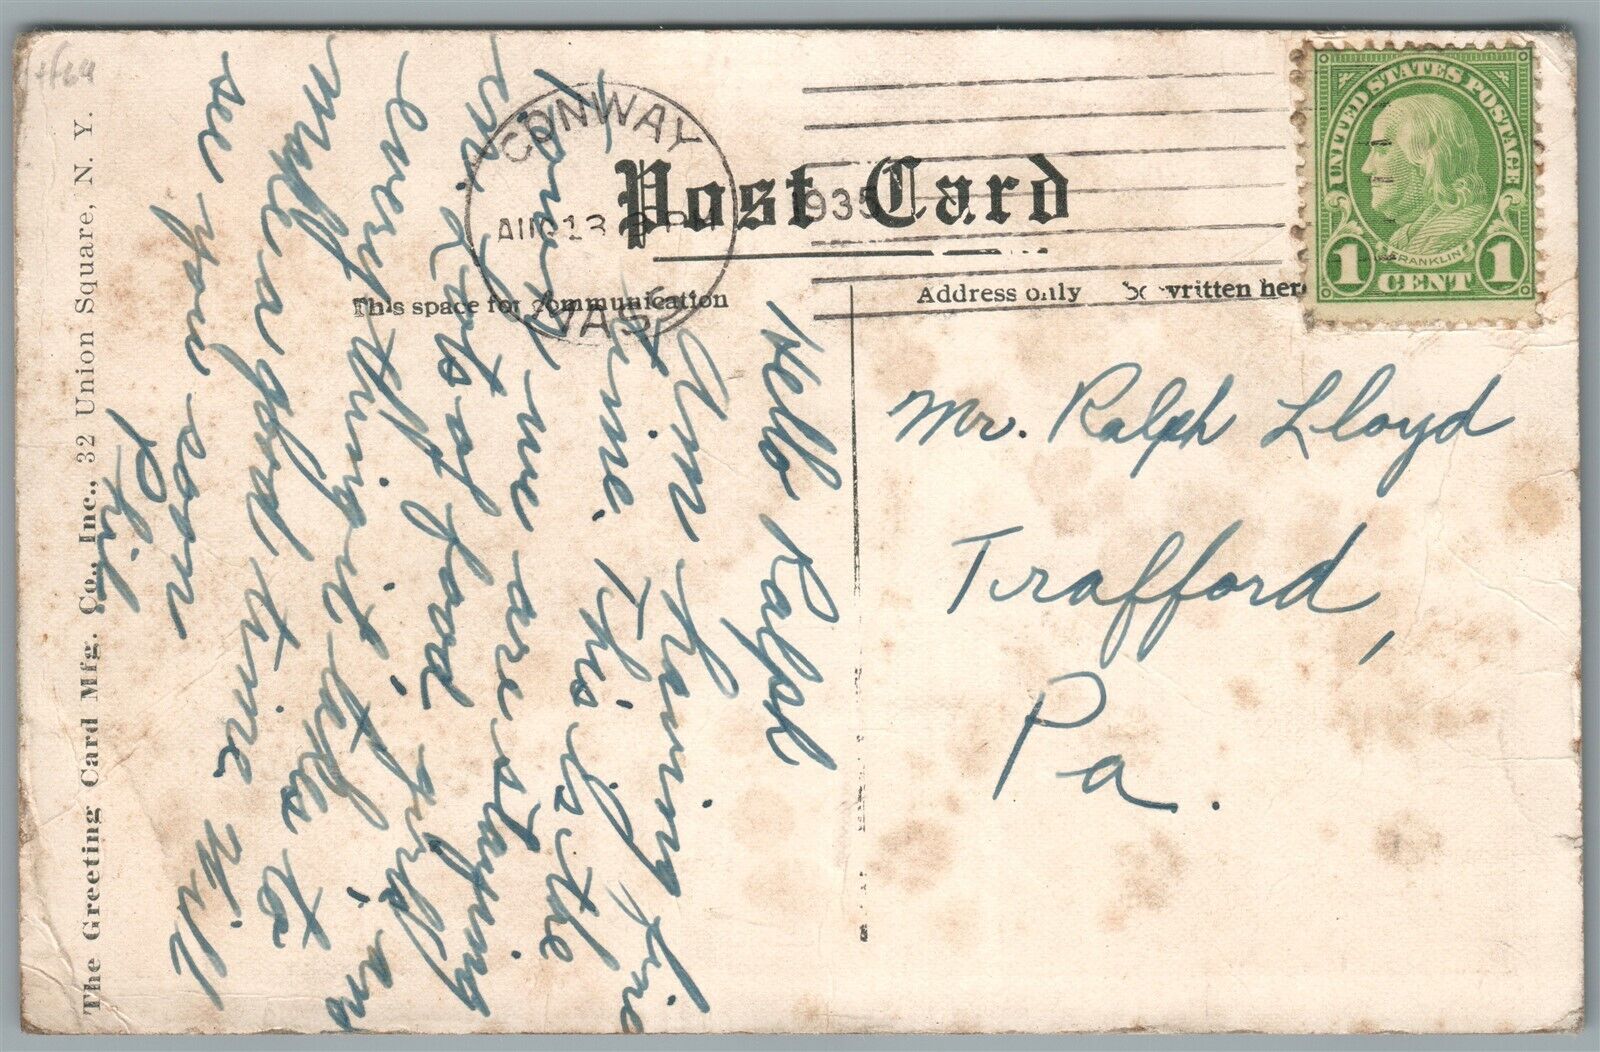 CONWAY
AUG 13
PM
1935
MASS
Post Card
This space for communication
Address only
be written here
UNITED STATES POSTAGE
FRANKLIN
1 CENT 1
Hello Ralph
Am having fine
time. This is the
place we are staying
at. Lots of food
girls, and
everything it takes to
make a good time
Will
see you soon
Phil
Mr. Ralph Lloyd
Trafford,
Pa.
The Greeting Card Mfg. Co., Inc., 32 Union Square, N. Y.